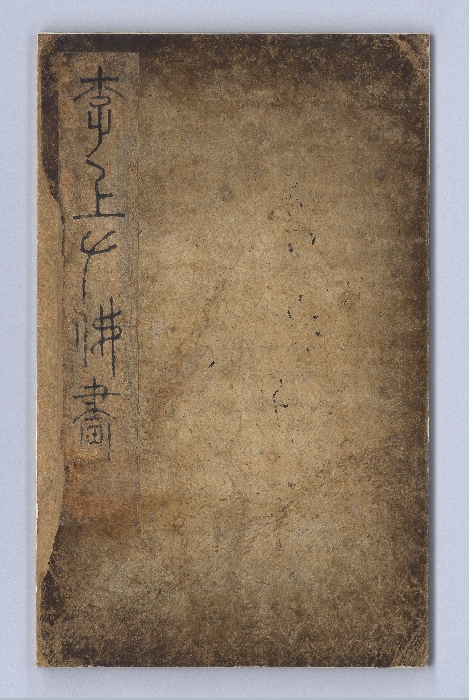 李上佛畫